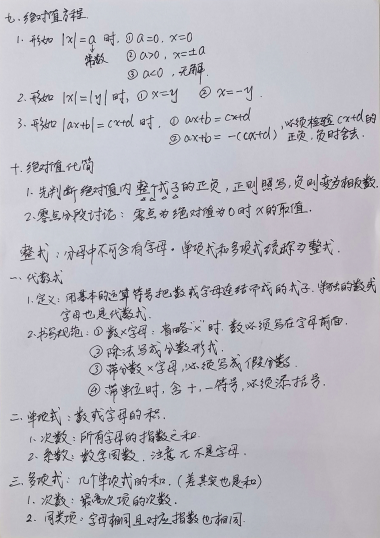 七.绝对值方程
1. 形如 |x|=a 时, ①a=0, x=0
常数 ②a>0, x=±a
③a<0, 无解
2. 形如 |x|=|y| 时, ①x=y ②x=-y.
3. 形如 |ax+b|=cx+d 时, ①ax+b=cx+d
②ax+b=-(cx+d) 必须检验cx+d的
正负,负时舍去.
十.绝对值化简
1. 先判断绝对值内整个式子的正负,正则照写,负则变为相反数.
2. 零点分段讨论: 零点为绝对值为0时x的取值.
整式: 分母中不可含有字母. 单项式和多项式统称为整式.
一.代数式
1. 定义: 用基本的运算符号把数或字母连结而成的式子.单独的数或
字母也是代数式.
2. 书写规范: ①数×字母, 省略"×"时, 数必须写在字母前面.
②除法写成分数形式.
③带分数×字母,必须写成假分数.
④带单位时,含+,-符号,必须添括号.
二.单项式: 数或字母的积.
1. 次数: 所有字母的指数之和.
2. 系数: 数字因数, 注意π不是字母.
三.多项式: 几个单项式的和. (差其实也是和)
1. 次数: 最高次项的次数.
2. 同类项: 字母相同且对应指数也相同.